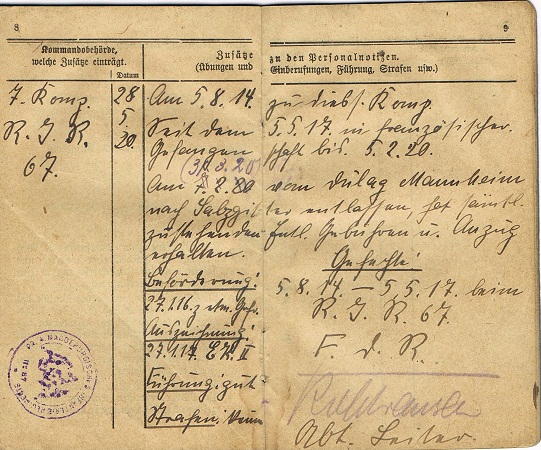 8
9
Kommandobehörde,
welche Zusätze einträgt.
Datum
Zusätze zu den Personalnotizen.
(Übungen und Einberufungen, Führung, Strafen usw.)
7. Komp.
R. I. R.
67.
28
5
20.
Am 5.8.14. zu dies. Komp.
Seit dem 5.5.17. in französischer
Gefangenschaft bis 5.2.20.
Am 8.20 vom Dulag Mannheim
nach Salzgitter entlassen, hat sämtl.
zustehenden Entl. Gebühren u. Anzug
erhalten.
Beförderung:
27.1.16. z. Gefr.
Auszeichnung:
27.1.17. E.K. II
Führung: gut
Strafen: keine
Gefechte:
5.8.14. — 5.5.17. beim
R. I. R. 67.
F. d. R.
Abt. Leiter.